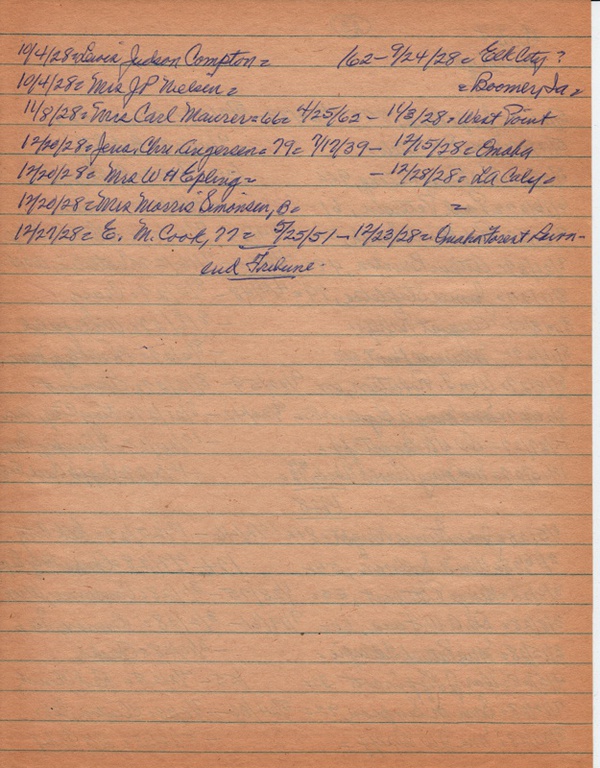 10/4/28 = Lewis Judson Compton = 1/62 - 9/24/28 = Elk City ?
10/4/28 = Mrs J P Nielsen = = Boomer, Ia =
11/8/28 = Mrs Carl Maurer = 66 = 4/25/62 - 11/3/28 = West Point
12/20/28 = Jens. Chr. Andersen = 79 = 7/17/39 - 12/15/28 = Omaha
12/20/28 = Mrs W A Epling = - 12/28/28 = =
12/20/28 = Mrs Morris Simonsen, B = =
12/27/28 = E. M. Cook, 77 = 5/25/51 - 12/23/28 = Omaha Forest Lawn -
end Tribune.